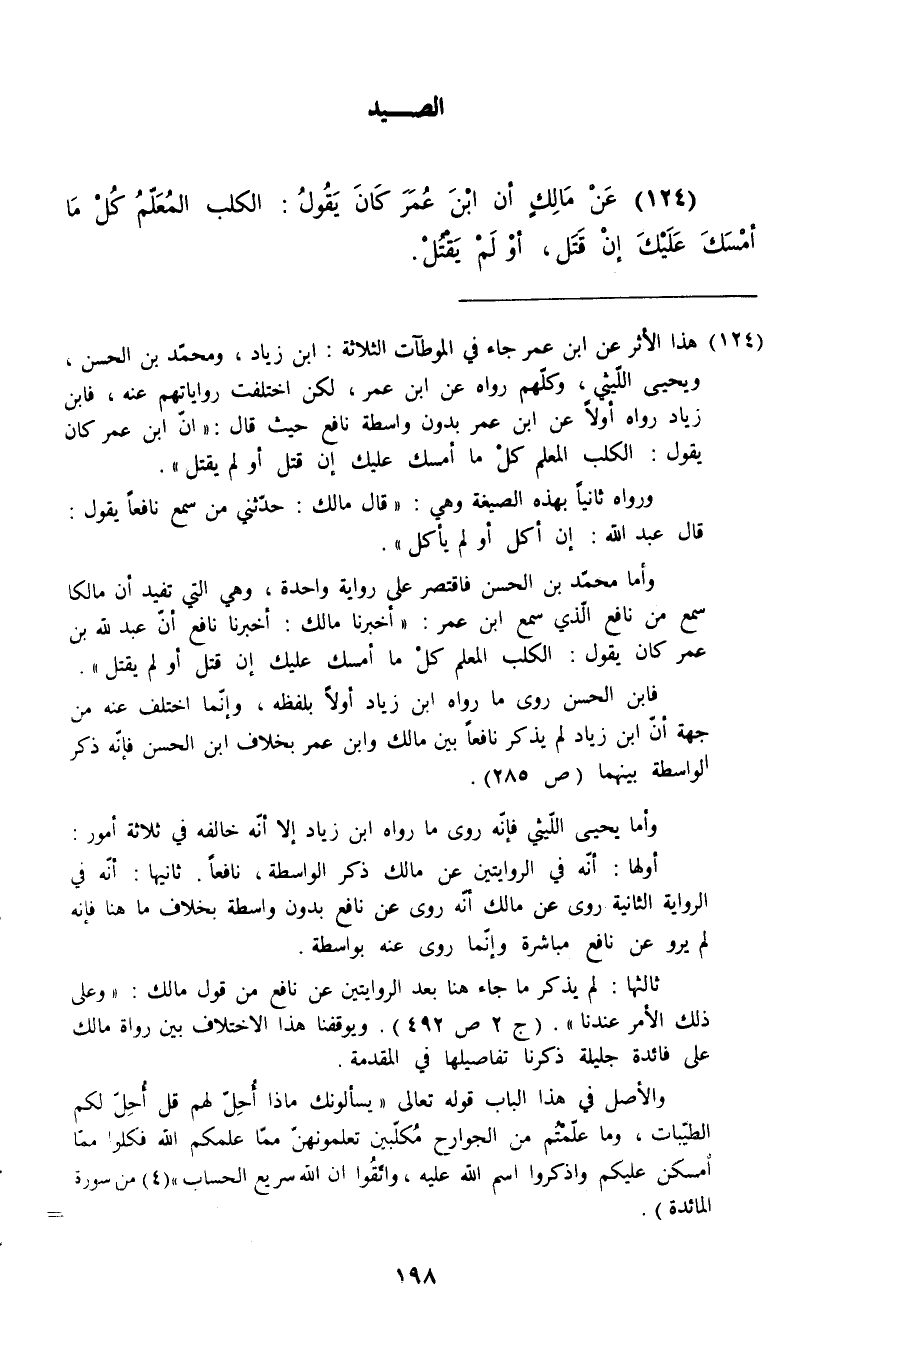 الصـــيد
(١٢٤) عَنْ مَالِكٍ أن ابْنَ عُمَرَ كَانَ يَقُولُ : الكلب المُعَلَّمُ كُلْ مَا
أمْسَكَ عَلَيْكَ إنْ قَتَل ، أوْ لَمْ يَقْتُلْ.
(١٢٤) هذا الأثر عن ابن عمر جاء في الموطآت الثلاثة : ابن زياد ، ومحمّد بن الحسن ،
ويحيى اللّيثي ، وكلّهم رواه عن ابن عمر ، لكن اختلفت رواياتهم عنه ، فابن
زياد رواه أولاً عن ابن عمر بدون واسطة نافع حيث قال :« انّ ابن عمر كان
يقول : الكلب المعلم كلْ ما أمسك عليك إن قتل أو لم يقتل » .
ورواه ثانياً بهذه الصيغة وهي : « قال مالك : حدّثني من سمع نافعاً يقول :
قال عبد الله : إن أكل أو لم يأكل » .
وأما محمّد بن الحسن فاقتصر على رواية واحدة ، وهي التي تفيد أن مالكا
سمع من نافع الّذي سمع ابن عمر : « أخبرنا مالك : أخبرنا نافع أنّ عبد لله بن
عمر كان يقول : الكلب المعلم كلْ ما أمسك عليك إن قتل أو لم يقتل » .
فابن الحسن روى ما رواه ابن زياد أولاً بلفظه ، وإنّما اختلف عنه من
جهة أنّ ابن زياد لم يذكر نافعاً بين مالك وابن عمر بخلاف ابن الحسن فإنّه ذكر
الواسطة بينهما ( ص ٢٨٥) .
وأما يحيى اللّيثي فإنّه روى ما رواه ابن زياد إلا أنّه خالفه في ثلاثة أمور :
أولها : أنّه في الروايتين عن مالك ذكر الواسطة ، نافعاً . ثانيها : أنّه في
الرواية الثانية روى عن مالك أنّه روى عن نافع بدون واسطة بخلاف ما هنا فإنه
لم يرو عن نافع مباشرة وإنّما روى عنه بواسطة .
ثالثها : لم يذكر ما جاء هنا بعد الروايتين عن نافع من قول مالك : « وعلى
ذلك الأمر عندنا » . ( ج ٢ ص ٤٩٢ ) . ويوقفنا هذا الاختلاف بين رواة مالك
على فائدة جليلة ذكرنا تفاصيلها في المقدمة .
والأصل في هذا الباب قوله تعالى « يسألونك ماذا أُحِلّ لهم قل أُحِلّ لكم
الطيّبات ، وما علّمْتُم من الجوارح مُكلّبين تعلمونهنّ ممّا علمكم الله فكلوا ممّا
أمسكن عليكم واذكروا اسم الله عليه ، واتّقُوا ان الله سريع الحساب »(٤) من سورة
المائدة ) .
=
١٩٨